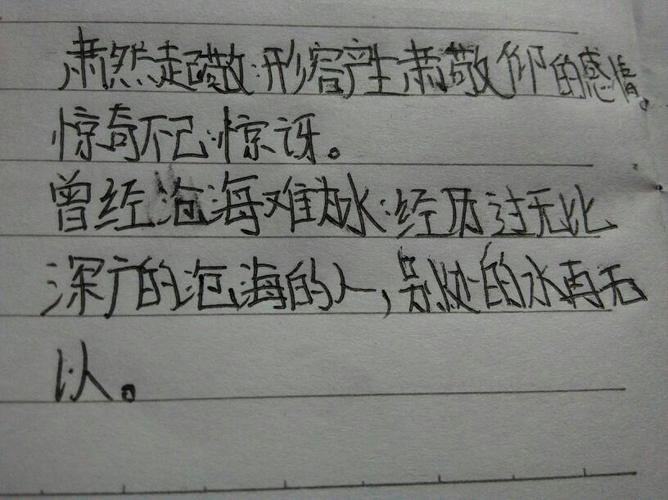 肃然起敬:形容产生肃敬仰的感情。
惊奇不已:惊讶。
曾经沧海难为水:经历过无比
深广的沧海的人,别处的水再无
以。